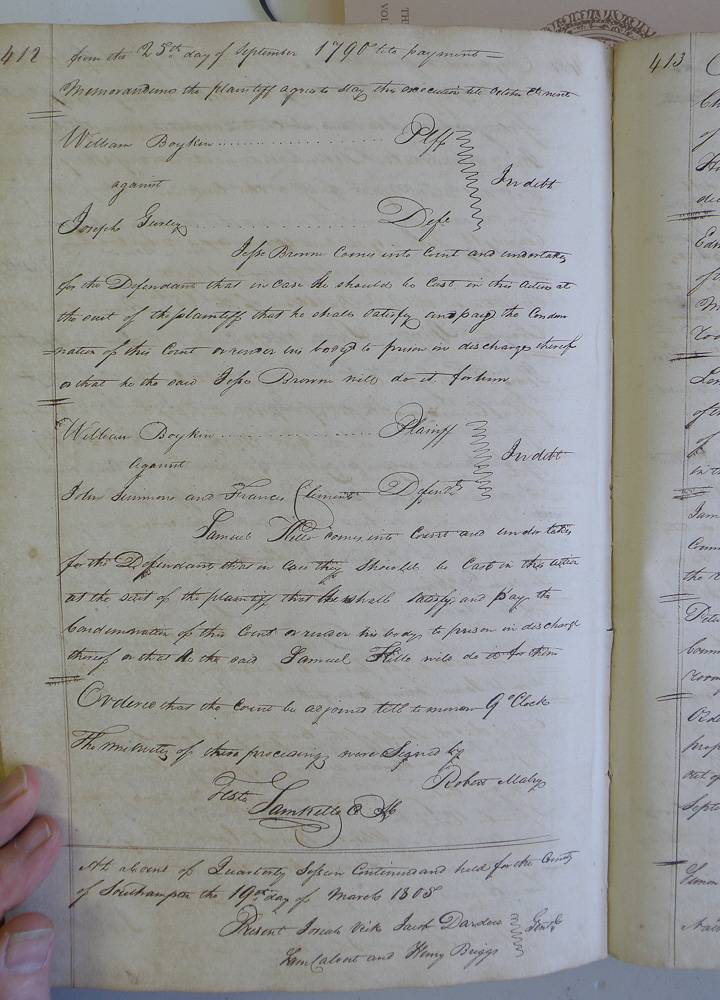 412
from the 25th day of September 1790 till payment =
Memorandum the plaintiff agrees to stay this execution till October Ct next
William Boykin .......... Plff
against
In debt
Joseph Gurley .......... Deft
Jesse Brown comes into Court and undertakes
for the Defendant that in case he should be Cast in this action at
the suit of the plaintiff that he shall satisfy and pay the Condem
nation of this Court or render his body to prison in discharge thereof
or that he the said Jesse Brown will do it for him
William Boykin .......... Plaintiff
Against
In debt
John Simmons and Francis Clements Defendts
Samuel Kello comes into Court and undertakes
for the Defendants that in Case they should be Cast in this action
at the suit of the plaintiff that he shall satisfy and pay the
Condemnation of this Court or render his body to prison in discharge
thereof or that he the said Samuel Kello will do it for them
Ordered that the Court be adjorned till tomorrow 9 oClock
The minutes of these proceedings were Signed by
Robert Mabry
Teste
Sam Kello C
At a Court of Quarterly Session Continued and held for the County
of Southampton the 19th day of March 1805
Present Josiah Vick Jacob Darden
Gent
Calvert and Henry Briggs
413